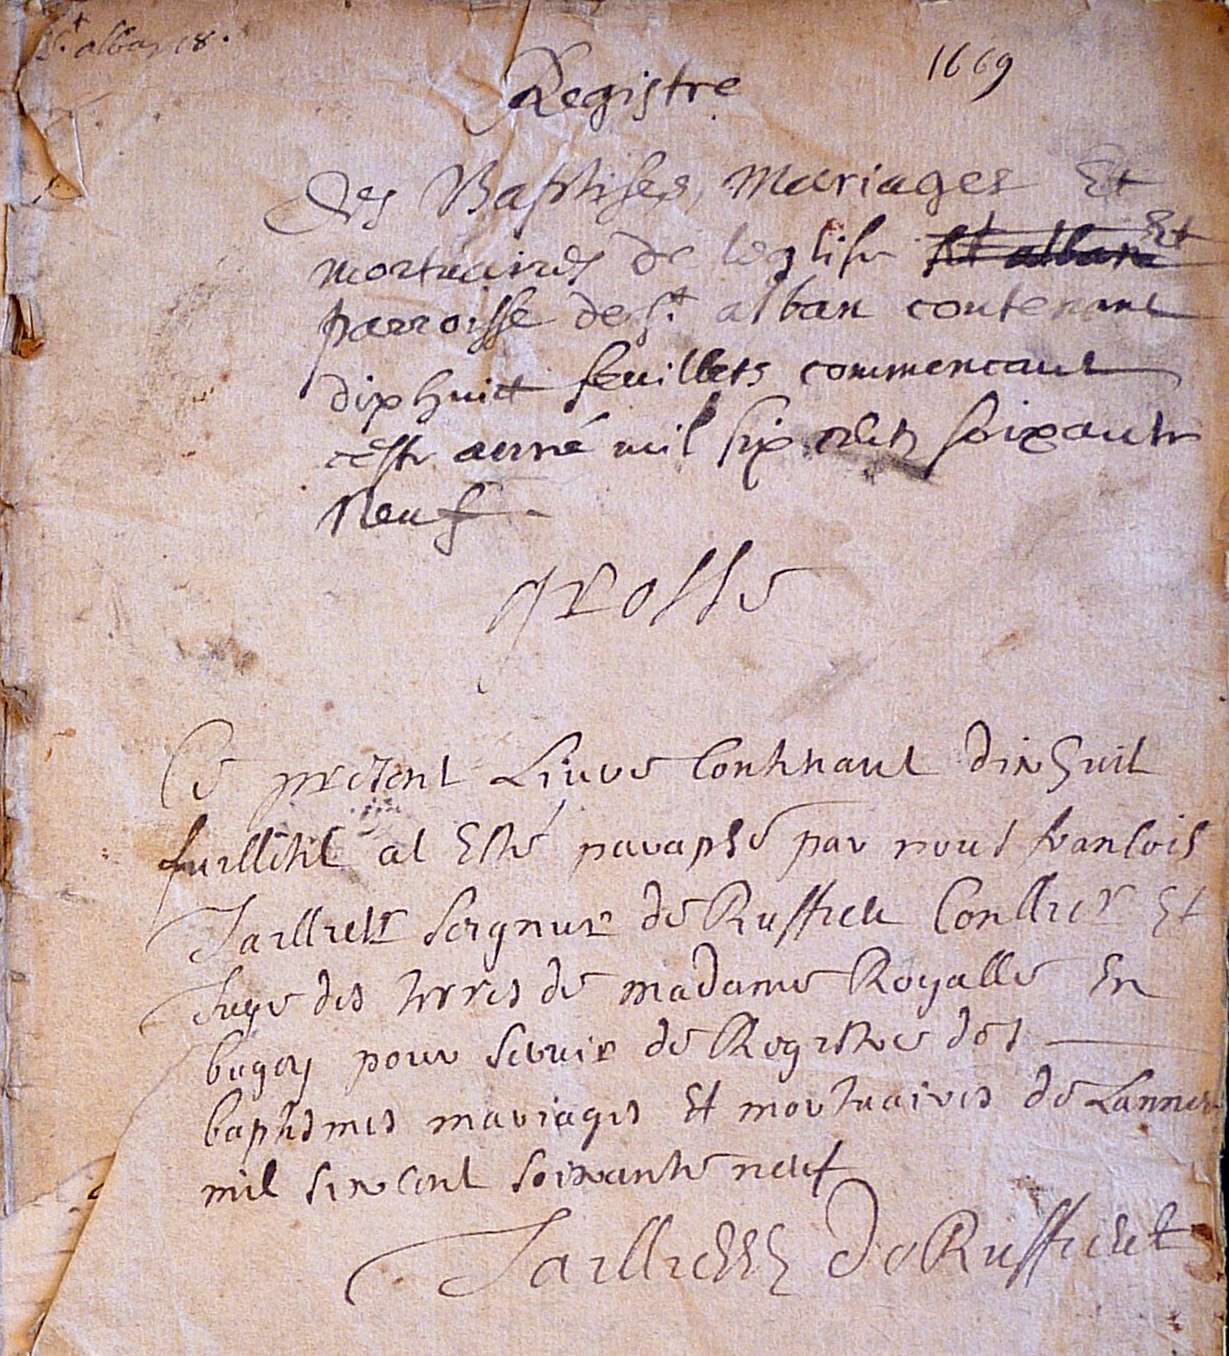 St alban 18.
1669
Registre
des Baptises, Mariages Et
mortuaires de leglise St alban Et
parroisse de St alban contenant
dixhuict feuillets commencant
ceste anné mil six cents soixante
Neuf.
grosse
Ce present Livre Contenant dixhuit
fuillietz at Esté paraphé par nous francois
Taillietz Seigneur de Ruffieu Conllier Et
Juge des terres de madame Royalle En
bugey pour servir de Registre des
baptesmes mariages Et mortuaires de Lannee
mil six cent soixante neuf
De Ruffieu